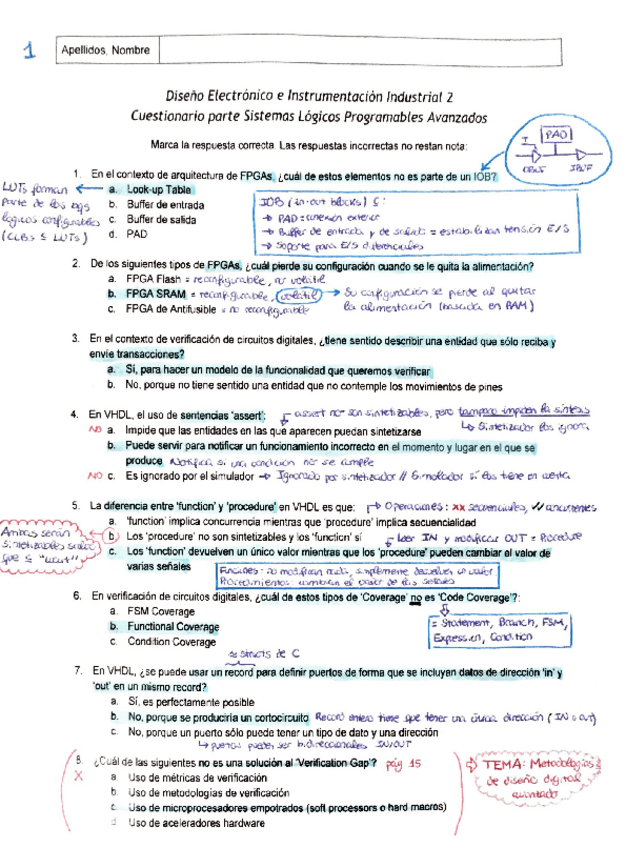 1
Apellidos, Nombre
Diseño Electrónico e Instrumentación Industrial 2
Cuestionario parte Sistemas Lógicos Programables Avanzados
Marca la respuesta correcta. Las respuestas incorrectas no restan nota:
PAD
T
OBUF
IBUF
1. En el contexto de arquitectura de FPGAs, ¿cuál de estos elementos no es parte de un IOB?
a. Look-up Table
b. Buffer de entrada
c. Buffer de salida
d. PAD
LUTs forman
parte de los
lógicos configurables
(CLBs ⊆ LUTs)
IOB (in-out blocks) ⊆:
→ PAD = conexión exterior
→ Buffer de entrada y de salida = estabilizan tensión E/S
→ Soporte para E/S diferenciales
2. De los siguientes tipos de FPGAs, ¿cuál pierde su configuración cuando se le quita la alimentación?
a. FPGA Flash = reconfigurable, no volátil
b. FPGA SRAM = reconfigurable, volátil → Su configuración se pierde al quitar
la alimentación (basada en RAM)
c. FPGA de Antifusible = no reconfigurable
3. En el contexto de verificación de circuitos digitales, ¿tiene sentido describir una entidad que sólo reciba y
envíe transacciones?
a. Sí, para hacer un modelo de la funcionalidad que queremos verificar
b. No, porque no tiene sentido una entidad que no contemple los movimientos de pines
4. En VHDL, el uso de sentencias 'assert':
assert no son sintetizables, pero tampoco impiden la síntesis
↳ Sintetizador los ignora
NO a. Impide que las entidades en las que aparecen puedan sintetizarse
b. Puede servir para notificar un funcionamiento incorrecto en el momento y lugar en el que se
produce Notifica si una condición no se cumple
NO c. Es ignorado por el simulador → Ignorado por sintetizador // Simulador sí los tiene en cuenta
5. La diferencia entre 'function' y 'procedure' en VHDL es que: → Operaciones: xx secuenciales, concurrentes
a. 'function' implica concurrencia mientras que 'procedure' implica secuencialidad
b. Los 'procedure' no son sintetizables y los 'function' sí
Leer IN y modificar OUT = Procedure
c. Los 'function' devuelven un único valor mientras que los 'procedure' pueden cambiar el valor de
varias señales
Ambas serán
sintetizables salvo
que ⊆ "wait"
Funciones: no modifican nada, simplemente devuelven un valor
Procedimientos: cambian el valor de las señales
6. En verificación de circuitos digitales, ¿cuál de estos tipos de 'Coverage' no es 'Code Coverage'?:
a. FSM Coverage
b. Functional Coverage
c. Condition Coverage
= Statement, Branch, FSM,
Expression, Condition
≈ structs de C
7. En VHDL, ¿se puede usar un record para definir puertos de forma que se incluyan datos de dirección 'in' y
'out' en un mismo record?
a. Sí, es perfectamente posible
b. No, porque se produciría un cortocircuito Record entero tiene que tener una única dirección (IN o out)
c. No, porque un puerto sólo puede tener un tipo de dato y una dirección
↳ puertos pueden ser bidireccionales IN/OUT
8. ¿Cuál de las siguientes no es una solución al 'Verification Gap'? pág 15
X
a. Uso de métricas de verificación
b. Uso de metodologías de verificación
c. Uso de microprocesadores empotrados (soft processors o hard macros)
d. Uso de aceleradores hardware
TEMA: Metodologías
de diseño digital
avanzado